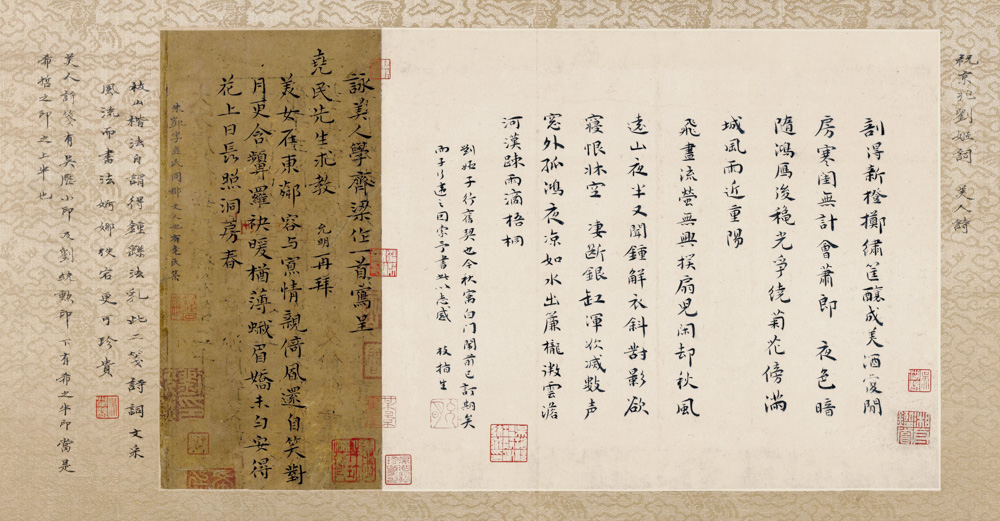 祝京兆劉姬詞 美人詩
剖得新橙擲繡筐釀成美酒復閒
房寒閨無計會蕭郎 夜色暗
隨鴻雁後穐光爭繞菊花傍滿
城風雨近重陽
飛盡流螢無興撲扇兒闲却秋風
遠山夜半又聞鍾解衣斜對影欲
寢恨牀空 凄斷銀缸渾欲滅數声
窓外孤鴻夜凉如水出簾櫳澂雲澹
河漢踈雨滴梧桐
劉姬子行宿契也今秋寓白门闈前已訂期矣
而子行遠之因索予書此以志感 枝指生
詠美人學齊梁作一首寫呈
堯民先生求教 允明再拜
美女在東鄰容与寫情親倚風還自笑對
月更含顰羅袂暖猶薄蛾眉嬌未匀安得
花上日長照洞房春
朱凱字堯民同郡文人也有堯民集
枝山楷法自謂得鍾繇法乳此二箋詩詞文采
風流而書法婀娜姿宕更可珍貴
美人詩箋有吳歷小印及劉統勳印下有希之半印當是
希哲之印之上半也